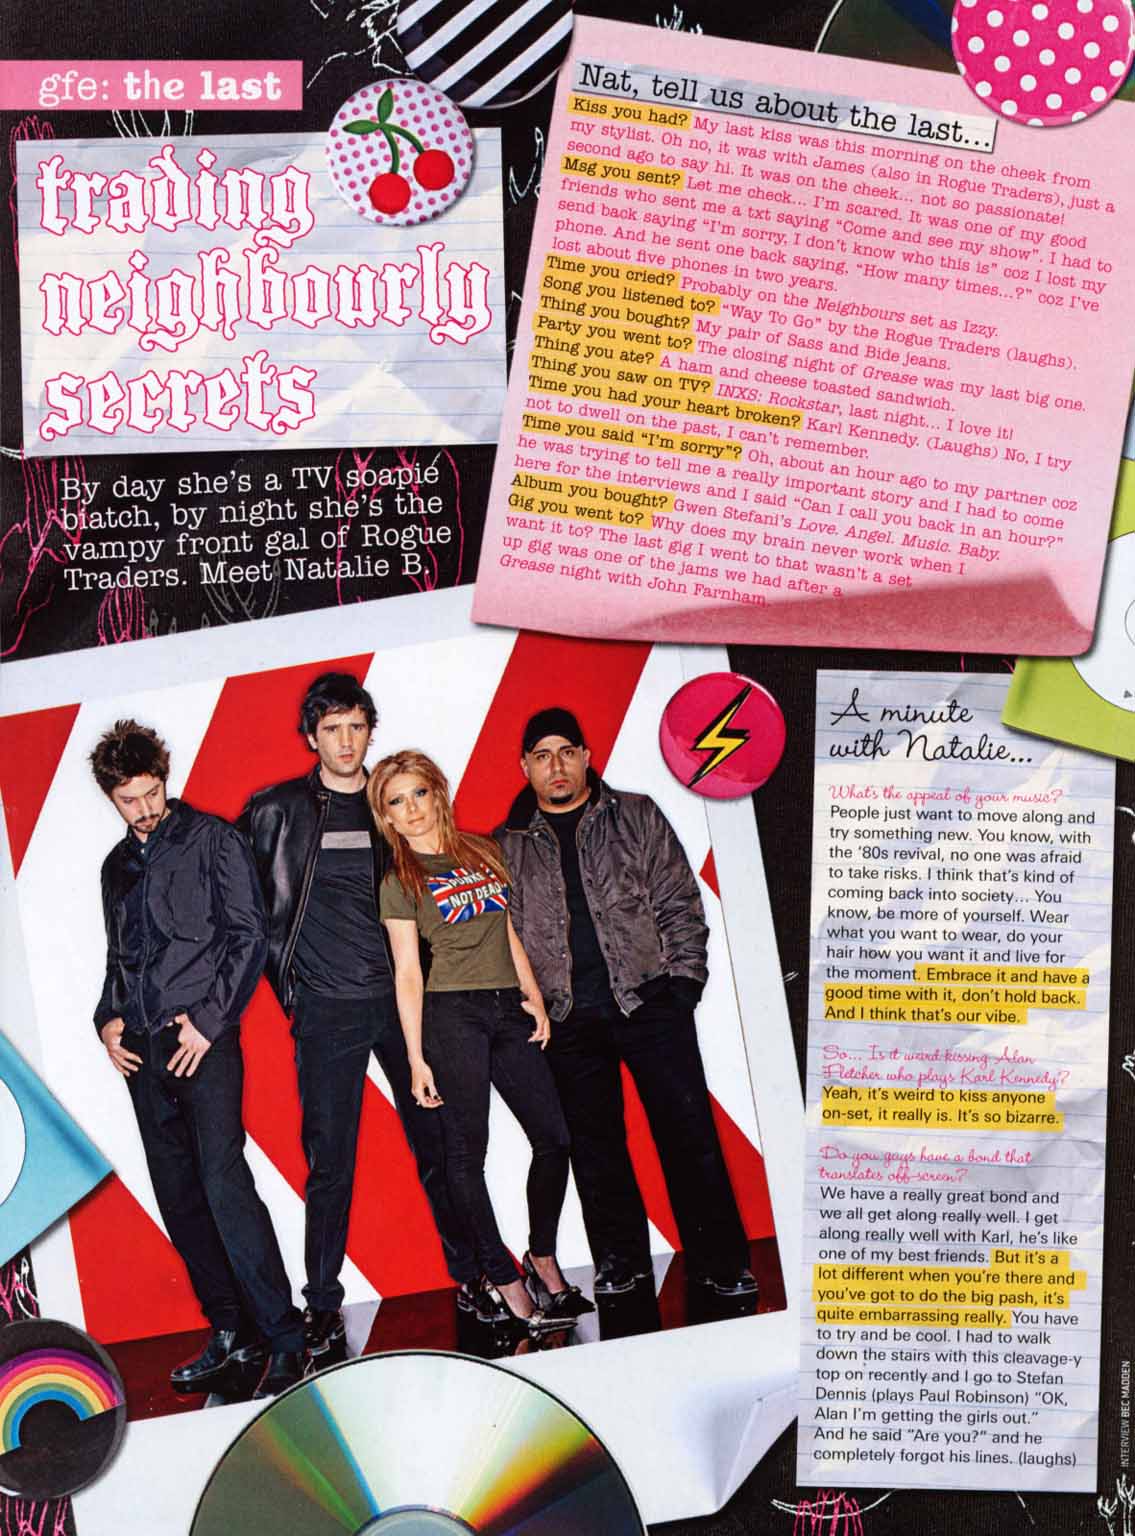 gfe: the last
trading
neighbourly
secrets
By day she's a TV soapie
biatch, by night she's the
vampy front gal of Rogue
Traders. Meet Natalie B.
Nat, tell us about the last...
Kiss you had? My last kiss was this morning on the cheek from
my stylist. Oh no, it was with James (also in Rogue Traders), just a
second ago to say hi. It was on the cheek... not so passionate!
Msg you sent? Let me check... I'm scared. It was one of my good
friends who sent me a txt saying "Come and see my show". I had to
send back saying "I'm sorry, I don't know who this is" coz I lost my
phone. And he sent one back saying, "How many times...?" coz I've
lost about five phones in two years.
Time you cried? Probably on the Neighbours set as Izzy.
Song you listened to? "Way To Go" by the Rogue Traders (laughs).
Thing you bought? My pair of Sass and Bide jeans.
Party you went to? The closing night of Grease was my last big one.
Thing you ate? A ham and cheese toasted sandwich.
Thing you saw on TV? INXS: Rockstar, last night... I love it!
Time you had your heart broken? Karl Kennedy. (Laughs) No, I try
not to dwell on the past, I can't remember.
Time you said "I'm sorry"? Oh, about an hour ago to my partner coz
he was trying to tell me a really important story and I had to come
here for the interviews and I said "Can I call you back in an hour?"
Album you bought? Gwen Stefani's Love. Angel. Music. Baby.
Gig you went to? Why does my brain never work when I
want it to? The last gig I went to that wasn't a set
up gig was one of the jams we had after a
Grease night with John Farnham.
PUNKS
NOT DEAD
A minute
with Natalie...
What's the appeal of your music?
People just want to move along and
try something new. You know, with
the '80s revival, no one was afraid
to take risks. I think that's kind of
coming back into society... You
know, be more of yourself. Wear
what you want to wear, do your
hair how you want it and live for
the moment. Embrace it and have a
good time with it, don't hold back.
And I think that's our vibe.
So... Is it weird kissing Alan
Fletcher who plays Karl Kennedy?
Yeah, it's weird to kiss anyone
on-set, it really is. It's so bizarre.
Do you guys have a bond that
translates off-screen?
We have a really great bond and
we all get along really well. I get
along really well with Karl, he's like
one of my best friends. But it's a
lot different when you're there and
you've got to do the big pash, it's
quite embarrassing really. You have
to try and be cool. I had to walk
down the stairs with this cleavage-y
top on recently and I go to Stefan
Dennis (plays Paul Robinson) "OK,
Alan I'm getting the girls out."
And he said "Are you?" and he
completely forgot his lines. (laughs)
INTERVIEW BEC MADDEN